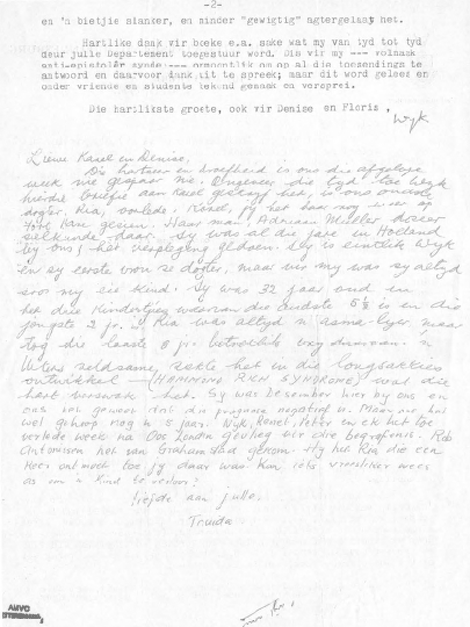 -2-
en 'n bietjie slanker, en minder "gewigtig" agtergelaat het.
Hartlike dank vir boeke e.a. sake wat my van tyd tot tyd
deur julle Departement toegestuur word. Dis vir my --- volmaak
anti-epistolêr synde --- onmoontlik om op al die toesendings te
antwoord en daarvoor dank uit te spreek; maar dit word gelees en
onder vriende en studente bekend gemaak en versprei.
Die hartlikste groete, ook vir Denise en Floris,
Wyk
Liewe Karel en Denise,
Die hartseer en droefheid is ons die afgelope
week nie gespaar nie. Ongeveer die tyd toe Wyk
hierdie briefie aan Karel getik het, is ons oudste
dogter, Ria, oorlede. Karel, jy het haar nog
gesien. Haar man, Adriaan Muller doseer
daar. Sy was al die jare in Holland
by ons, het verpleging gedoen. Sy is eintlik Wyk
en sy eerste vrou se dogter, maar vir my was sy altyd
soos my eie kind. Sy was 32 jaar oud en
het drie kindertjies waarvan die oudste 5½ is en die
jongste 2 jr. Ria was altyd 'n asma-lyer, maar
tog die laaste 6 jr. betreklik vry daarvan. 'n
Uiters seldsame siekte het in die
ontwikkel — (HAMMOND RICH SYNDROME) wat die
hart verswak het. Sy was Desember hier by ons en
ons het geweet dat die prognose negatief is. Maar
wel gehoop nog 'n jaar. Wyk, en ek het toe
verlede week na Oos Londen gevlieg vir die begrafenis. Rob
Antonissen het van Grahamstad gekom. Hy het Ria die een
keer ontmoet toe jy daar was. Kan iets vreesliker wees
as om 'n kind te verloor?
Liefde aan julle.
Truida
AMVC